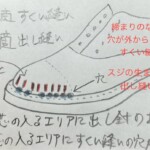 すくい縫い
出し縫い
穴
締まりのな
穴が外から
すくい縫
スジの生
出し縫
の入るエリアに出し針の
の入るエリアにすくい縫いの穴